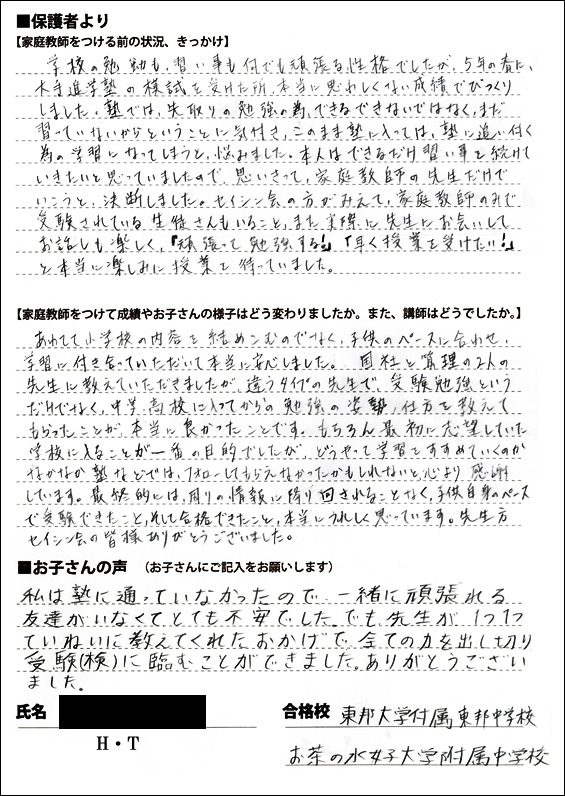 ■保護者より
【家庭教師をつける前の状況、きっかけ】
学校の勉強も、習い事も何でも頑張る性格でしたが、5年の春に、
大手進学塾の模試を受けた所、本当に思わしくない成績でびっくり
しました。塾では、先取りの勉強の為、できるできないではなく、まだ
習っていないからということに気付き、このまま塾に入っては、塾に追い付く
為の学習になってしまうと、悩みました。本人はできるだけ習い事を続けて
いきたいと思っていましたので、思いきって、家庭教師の先生だけで
いこうと、決断しました。セイシン会の方がみえて、家庭教師のみで
受験されている生徒さんもいること、また実際に先生にお会いして
お話しも楽しく、『頑張って勉強する!』『早く授業を受けたい!』
と本当に楽しみに授業を待っていました。
【家庭教師をつけて成績やお子さんの様子はどう変わりましたか。また、講師はどうでしたか。】
あわてて小学校の内容を詰めこむのでなく、子供のペースに合わせ、
学習に付き合っていただいて本当に安心しました。国社と算理の2人の
先生に教えていただきましたが、違うタイプの先生で、受験勉強という
だけでなく、中学、高校に入ってからの勉強の姿勢、仕方を教えて
もらったことが、本当に良かったことです。もちろん最初に志望していた
学校に入ることが一番の目的でしたが、どうやって学習をすすめていくのか
なかなか塾などでは、フォローしてもらえなかったかもしれないと、心より感謝
しています。最終的には、周りの情報に振り回されることなく、子供自身のペース
で受験できたこと、そして合格できたこと、本当にうれしく思っています。先生方
セイシン会の皆様ありがとうございました。
■お子さんの声 （お子さんにご記入をお願いします）
私は塾に通っていなかったので、一緒に頑張れる
友達がいなくてとても不安でした。でも先生が1つ1つ
ていねいに教えてくれたおかげで、全ての力を出し切り
受験(検)に臨むことができました。ありがとうござい
ました。
氏名
H・T
合格校 東邦大学付属東邦中学校
お茶の水女子大学附属中学校